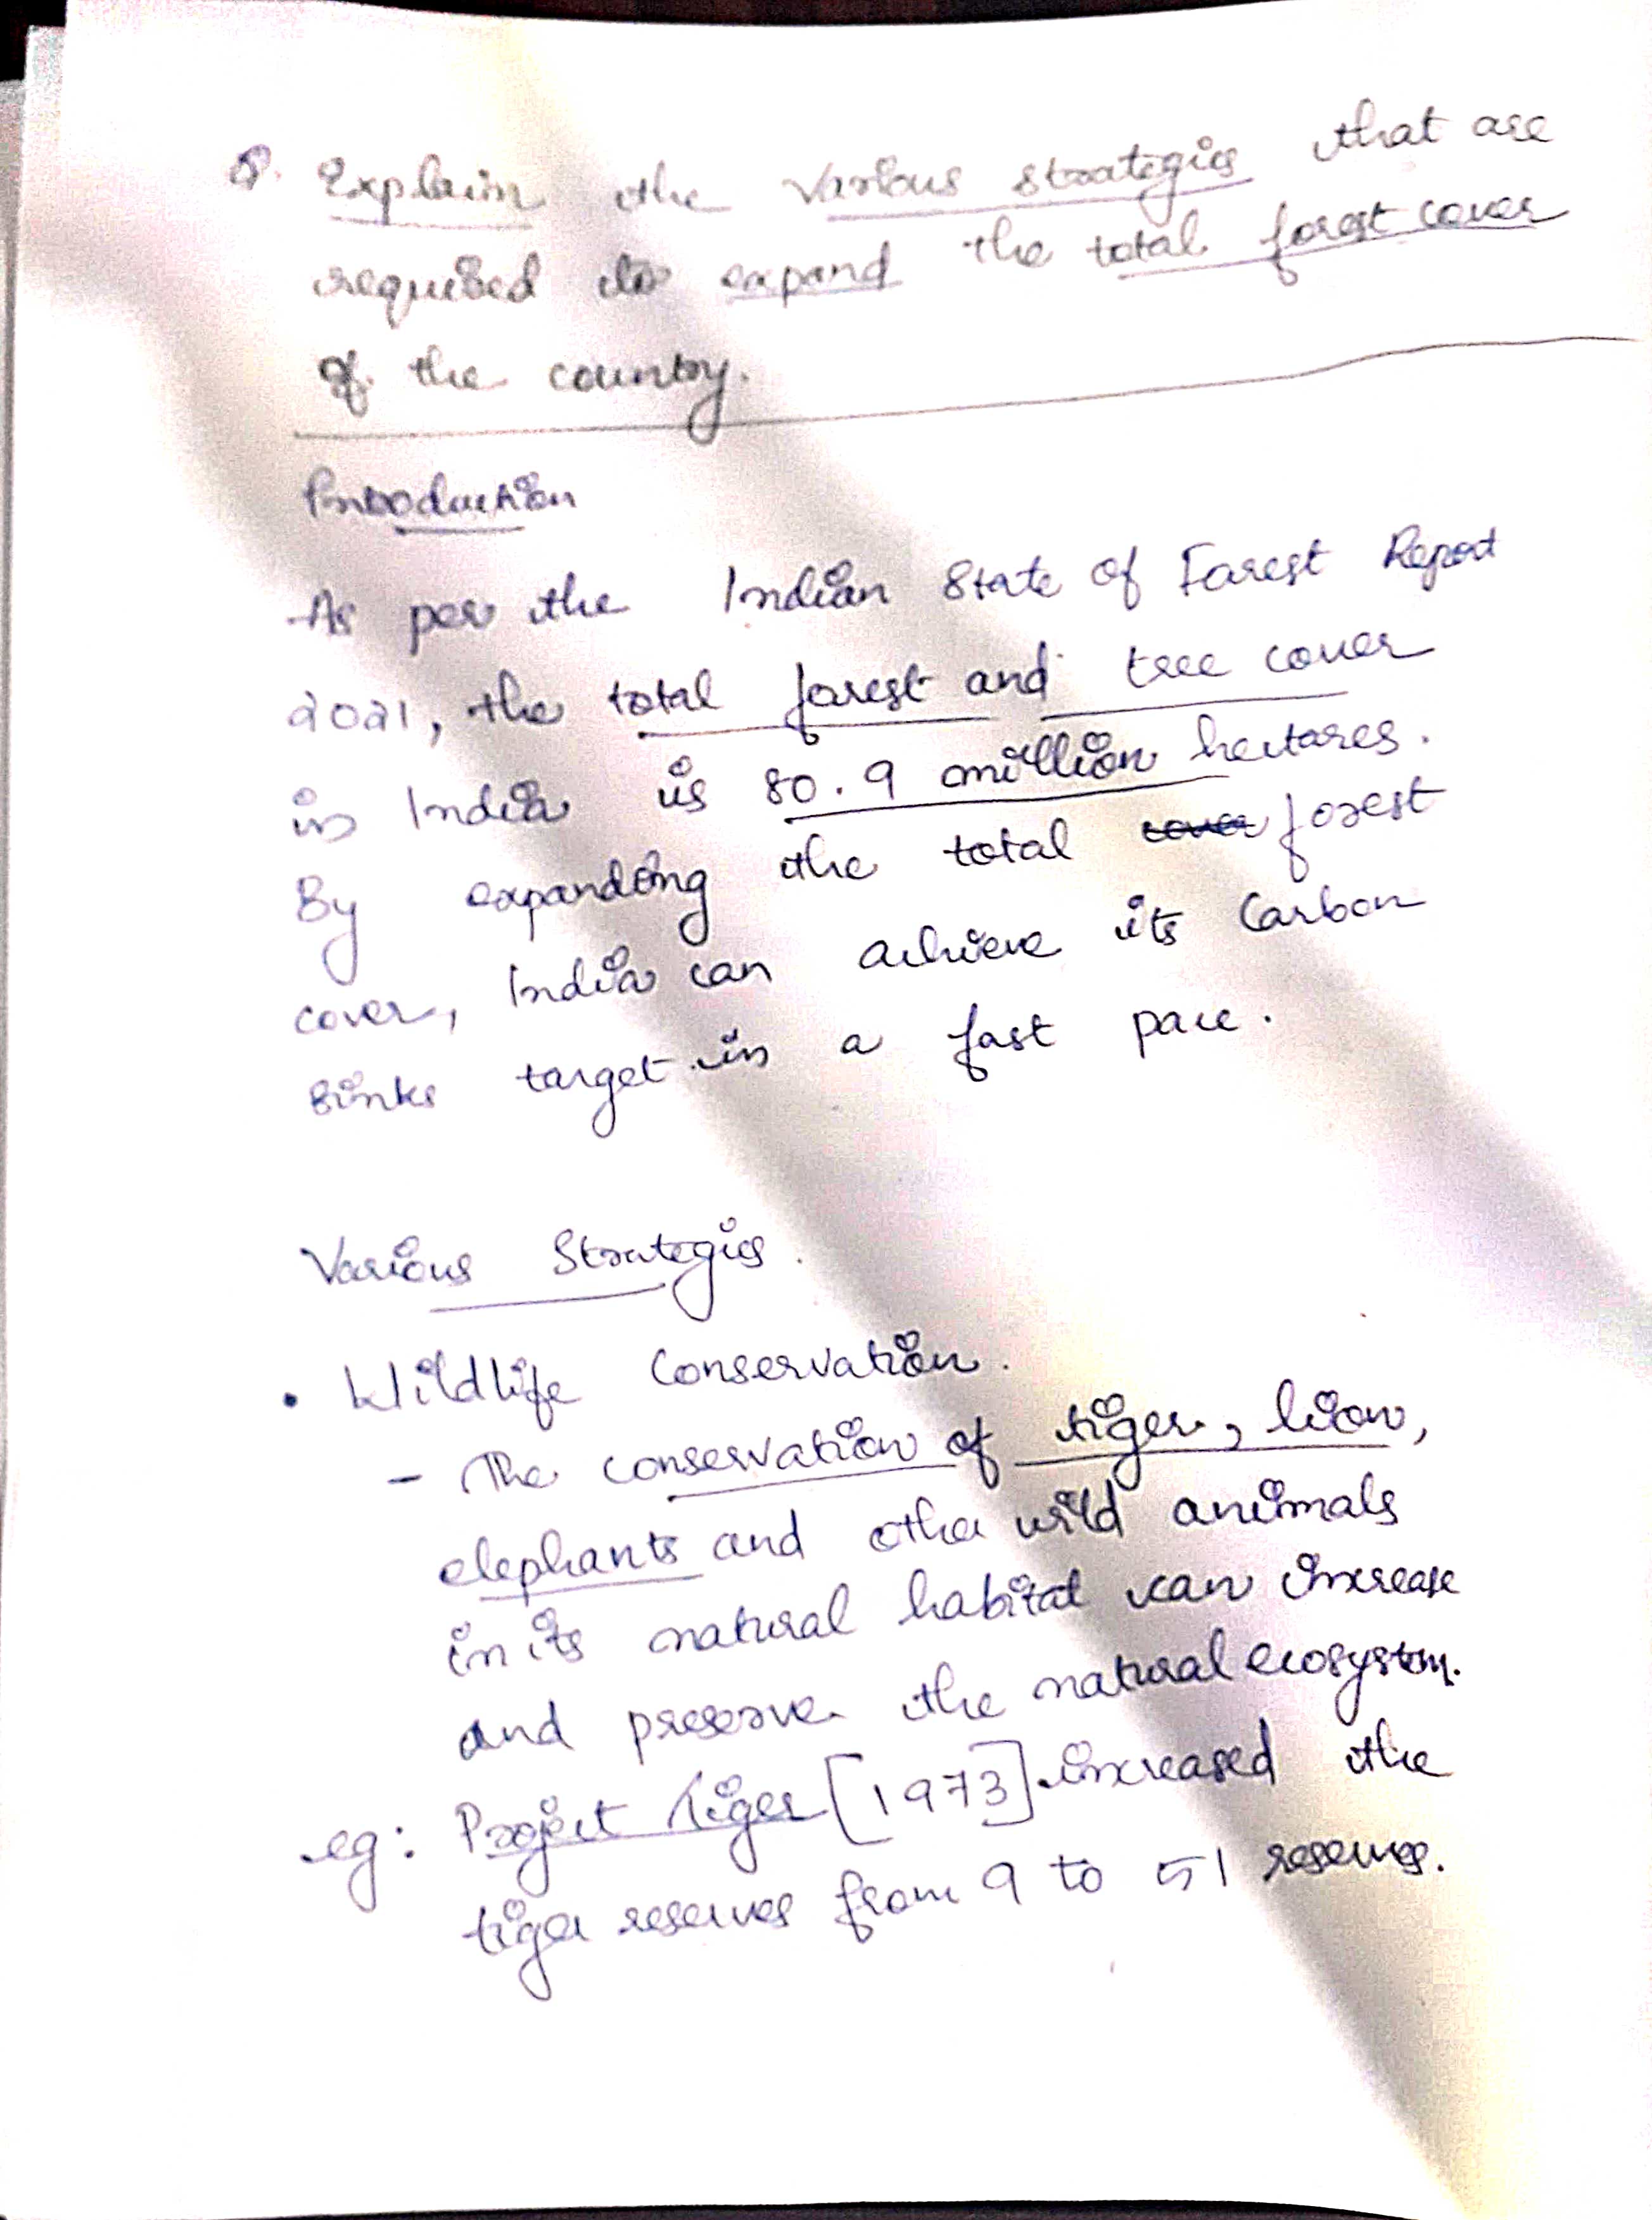 Q. Explain the various strategies that are
required to expand the total forest cover
of the country.
Introduction
As per the Indian State of Forest Report
2021, the total forest and tree cover
in India is 80.9 million hectares.
By expanding the total cover forest
cover, India can achieve its Carbon
sinks target in a fast pace.
Various Strategies.
• Wildlife Conservation.
- The conservation of tiger, lion,
elephants and other wild animals
in its natural habitat can increase
and preserve the natural ecosystem.
eg: Project Tiger [1973] increased the
tiger reserves from 9 to 51 reserves.